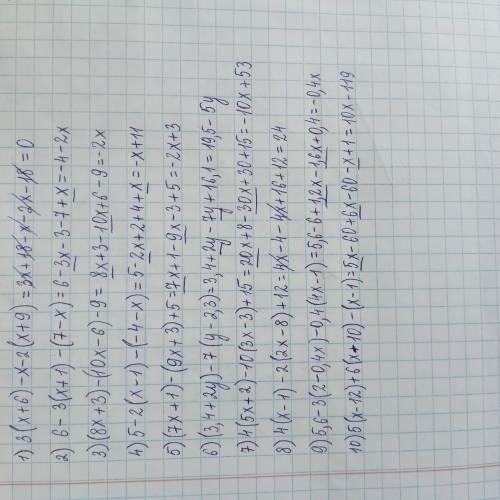 1) 3(x+6)-x-2(x+9)=3x+18-x-2x-18=0
2) 6-3(x+1)-(7-x)=6-3x-3-7+x=-4-2x
3) (8x+3)-(10x-6)-9=8x+3-10x+6-9=-2x
4) 5-2(x-1)-(-4-x)=5-2x+2+4+x=-x+11
5) (7x+1)-(9x+3)+5=7x+1-9x-3+5=-2x+3
6) (3,4+2y)-7(y-2,3)=3,4+2y-7y+16,1=19,5-5y
7) 4(5x+2)-10(3x-3)+15=20x+8-30x+30+15=-10x+53
8) 4(x-1)-2(2x-8)+12=4x-4-4x+16+12=24
9) 5,6-3(2-0,4x)-0,4(4x-1)=5,6-6+1,2x-1,6x+0,4=-0,4x
10) 5(x-12)+6(x-10)-(x-1)=5x-60+6x-60-x+1=10x-119